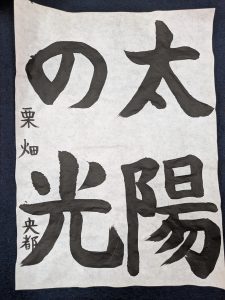 太陽
の光
栗畑央都